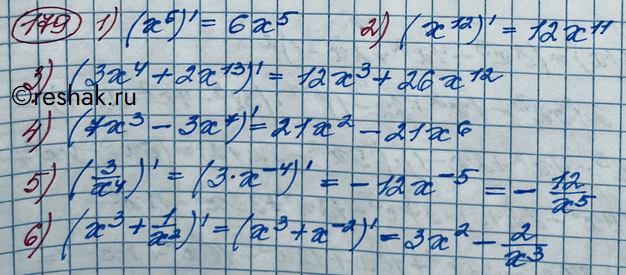 179 1) (x⁶)' = 6x⁵ 2) (x¹²)' = 12x¹¹
3) (3x⁴ + 2x¹³)' = 12x³ + 26x¹²
©reshak.ru
4) (7x³ − 3x⁷)' = 21x² − 21x⁶
5) (3/x⁴)' = (3·x⁻⁴)' = −12x⁻⁵ = −12/x⁵
6) (x³ + 1/x²)' = (x³ + x⁻²)' = 3x² − 2/x³